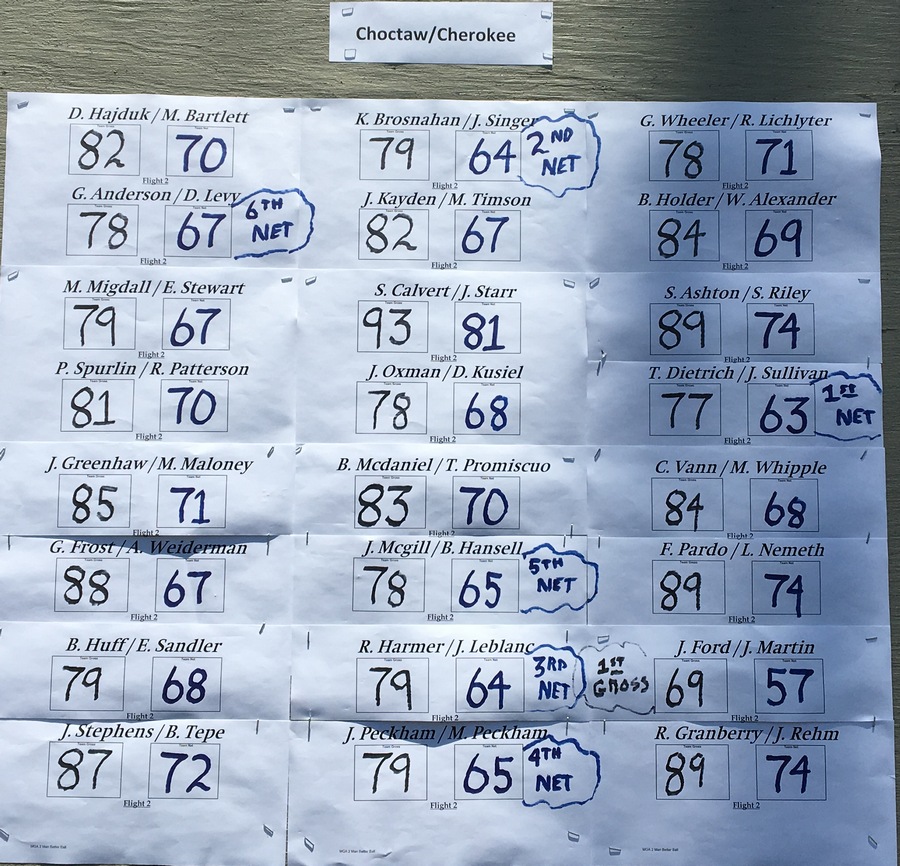 Choctaw/Cherokee
D. Hajduk / M. Bartlett
82 70
Flight 2
K. Brosnahan / J. Singer
79 64 2ND NET
Flight 2
G. Wheeler / R. Lichlyter
78 71
Flight 2
G. Anderson / D. Levy
78 67 6TH NET
Flight 2
J. Kayden / M. Timson
82 67
Flight 2
B. Holder / W. Alexander
84 69
Flight 2
M. Migdall / E. Stewart
79 67
Flight 2
S. Calvert / J. Starr
93 81
Flight 2
S. Ashton / S. Riley
89 74
Flight 2
P. Spurlin / R. Patterson
81 70
Flight 2
J. Oxman / D. Kusiel
78 68
Flight 2
T. Dietrich / J. Sullivan
77 63 1ST NET
Flight 2
J. Greenhaw / M. Maloney
85 71
Flight 2
B. Mcdaniel / T. Promiscuo
83 70
Flight 2
C. Vann / M. Whipple
84 68
Flight 2
G. Frost / A. Weiderman
88 67
Flight 2
J. Mcgill / B. Hansell
78 65 5TH NET
Flight 2
F. Pardo / L. Nemeth
89 74
Flight 2
B. Huff / E. Sandler
79 68
Flight 2
R. Harmer / J. Leblanc
79 64 3RD NET
Flight 2
J. Ford / J. Martin
1ST GROSS 69 57
Flight 2
J. Stephens / B. Tepe
87 72
Flight 2
J. Peckham / M. Peckham
79 65 4TH NET
Flight 2
R. Granberry / J. Rehm
89 74
Flight 2